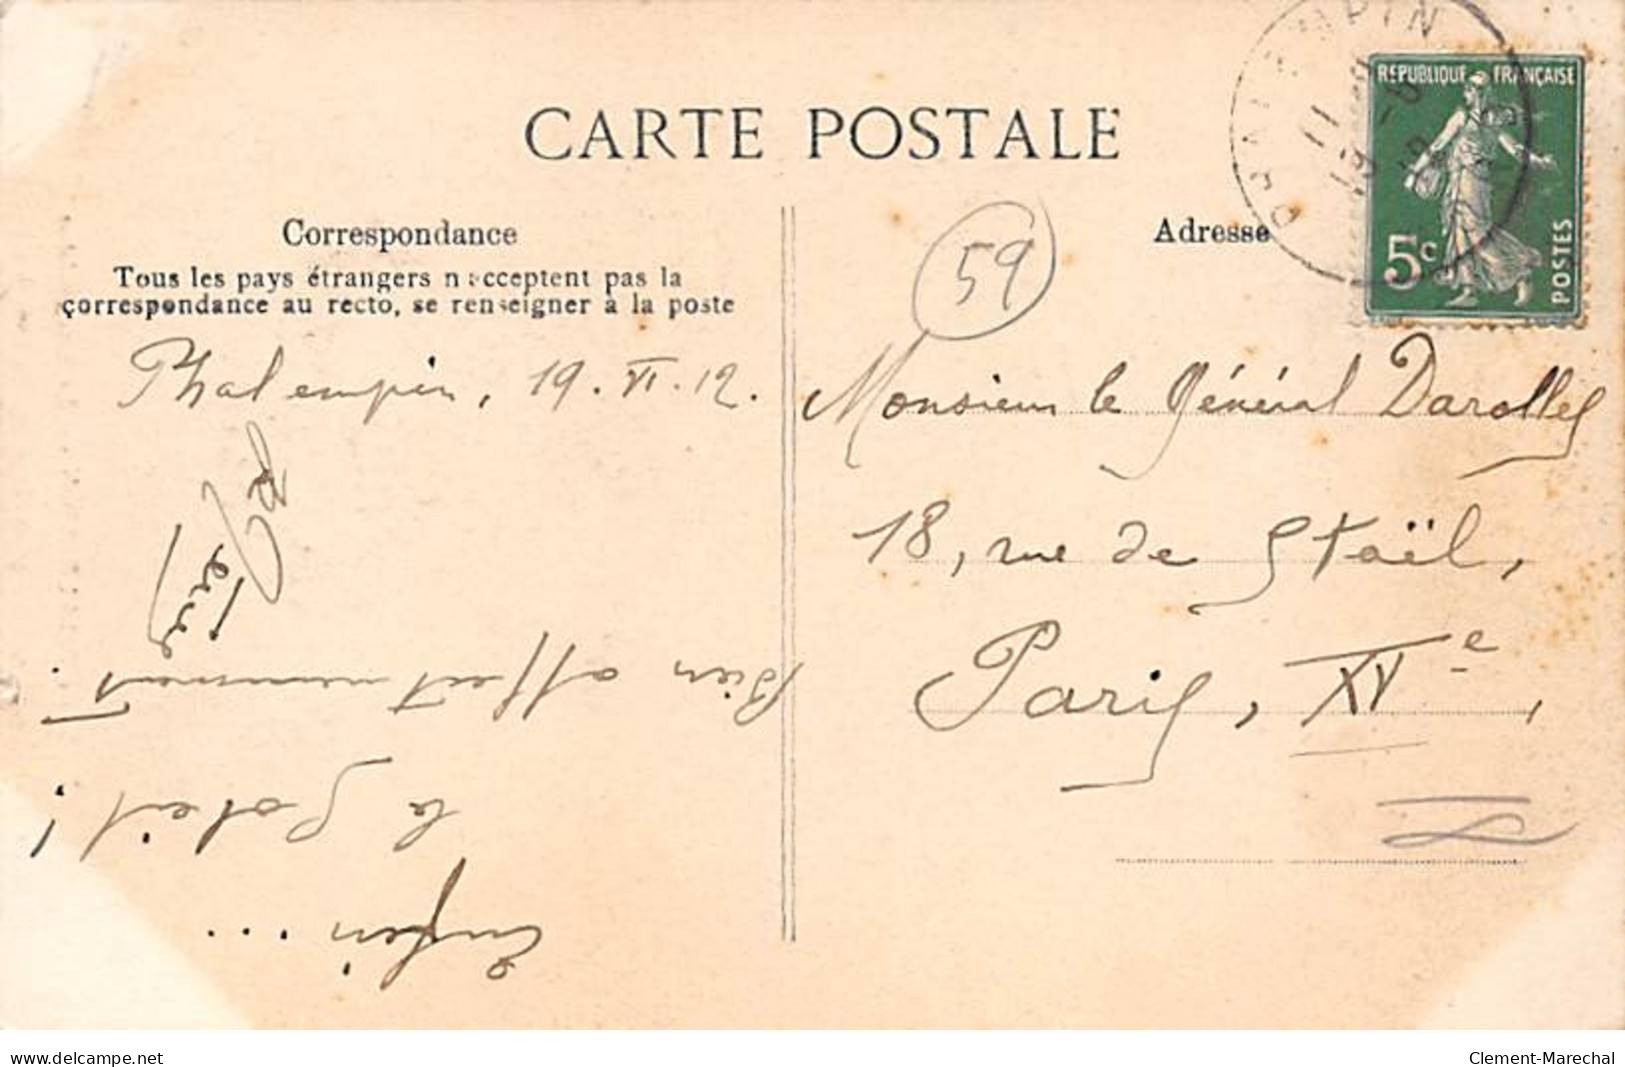 CARTE POSTALE
Correspondance
Tous les pays étrangers n'acceptent pas la
correspondance au recto, se renseigner à la poste
Phalempin, 19.VI.12.
Enfin...
le Soleil !
Bien affectueusement.
Adresse
59
RÉPUBLIQUE FRANÇAISE
5c
POSTES
PHALEMPIN
Monsieur le Général Darolles
18, rue de Staël,
Paris, XVe,
www.delcampe.net
Clement-Marechal